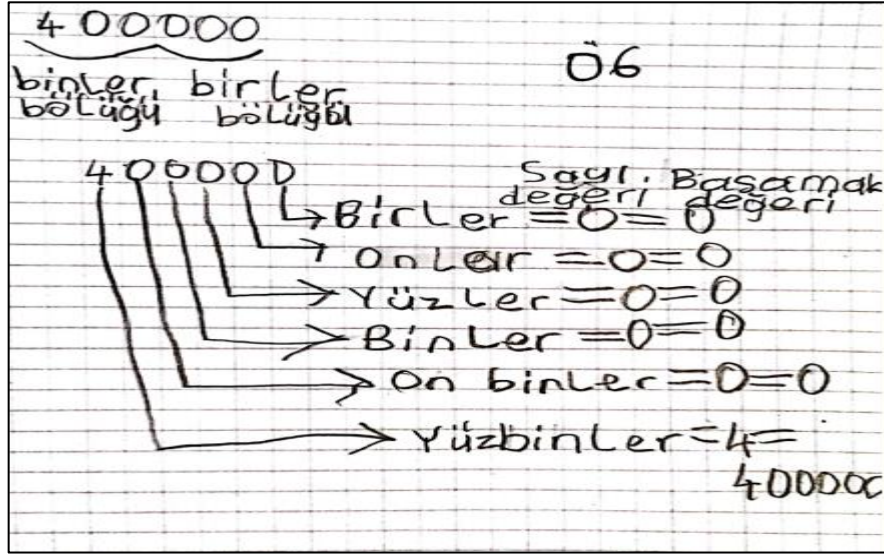 400000
Ö6
binler birler
bölüğü bölüğü
400000
Sayı Basamak
değeri değeri
Birler = 0 = 0
Onlar = 0 = 0
Yüzler = 0 = 0
Binler = 0 = 0
On binler = 0 = 0
Yüzbinler = 4 =
400000